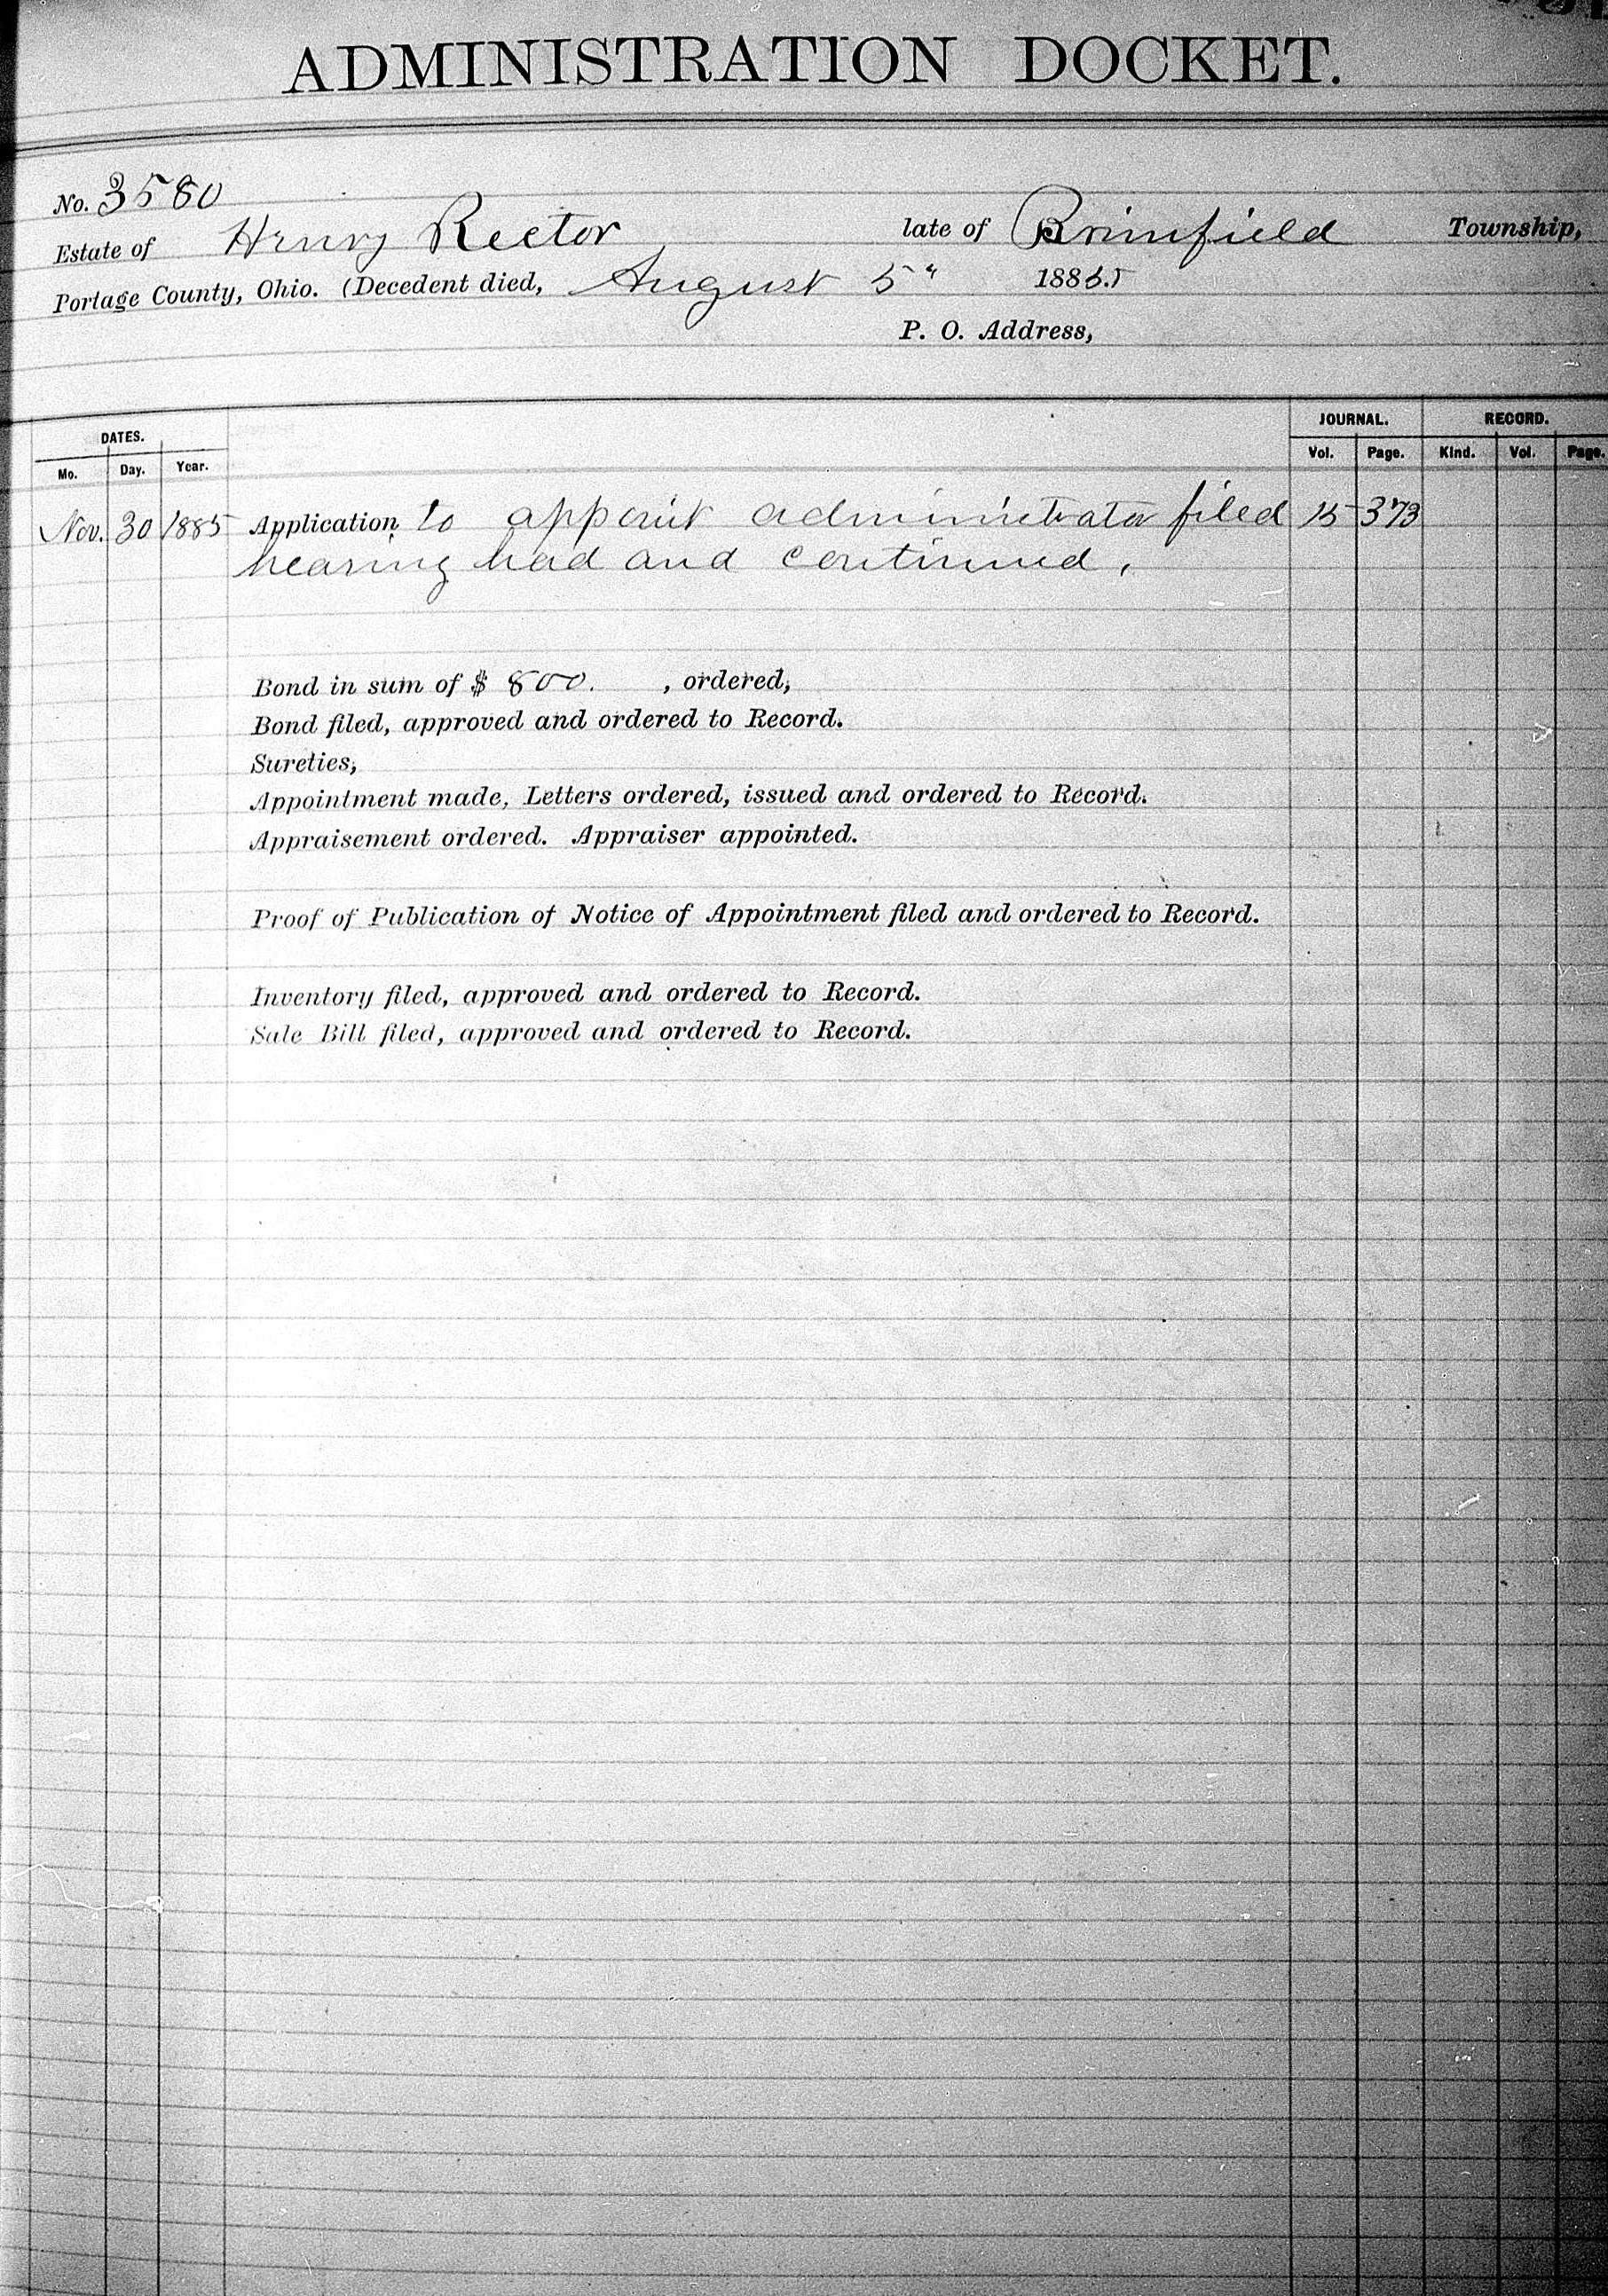 ADMINISTRATION DOCKET.
No. 3580
Estate of Henry Rector late of Brimfield Township,
Portage County, Ohio. (Decedent died, August 5" 1885.
P. O. Address,
DATES. JOURNAL. RECORD.
Mo. Day. Year. Vol. Page. Kind. Vol. Page.
Nov. 30 1885 Application to appoint administrator filed 15 373
hearing had and continued.
Bond in sum of $ 800. , ordered,
Bond filed, approved and ordered to Record.
Sureties,
Appointment made, Letters ordered, issued and ordered to Record.
Appraisement ordered. Appraiser appointed.
Proof of Publication of Notice of Appointment filed and ordered to Record.
Inventory filed, approved and ordered to Record.
Sale Bill filed, approved and ordered to Record.